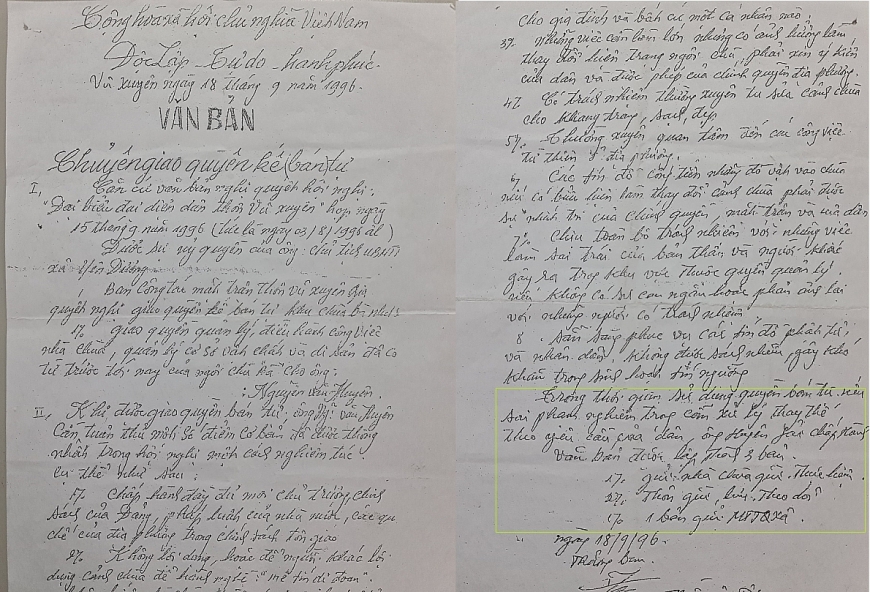 Cộng hòa xã hội chủ nghĩa Việt Nam
Độc Lập - Tự do - hạnh phúc.
Vũ xuyên ngày 18 tháng 9 năm 1996.
VĂN BẢN
Chuyển giao quyền kế (bán) tự
I, Căn cứ văn bản nghị quyết hội nghị.
"Đại biểu đại diện dân thôn Vũ xuyên" họp ngày
15 tháng 9 năm 1996 (tức là ngày 03/8/1996 âl)
Được sự uỷ quyền của ông: chủ tịch UBMTTQ
xã Yên Dương
Ban công tác mặt trận thôn Vũ xuyên ra
quyết nghị giao quyền kế bán tự khu chùa bà như sau
1% giao quyền quản lý, điều hành công việc
nhà chùa, quản lý cơ sở vật chất và di sản đã có
từ trước tới nay của ngôi chùa cho ông:
Nguyễn văn Huyên.
II, Khi được giao quyền bán tự, ông Ng: văn Huyên
Cần tuân thủ một số điểm cơ bản đã được thống
nhất trong hội nghị một cách nghiêm túc.
cụ thể như sau:
1% Chấp hành đầy đủ mọi chủ trương chính
sách của Đảng, pháp luật của nhà nước, các quy
chế của địa phương trong chính sách tôn giáo
2% Không lợi dụng, hoặc để người khác lợi
dụng cảnh chùa để hành nghề "mê tín dị đoan".
cho gia đình và bất cứ một cá nhân nào.
3% những việc cần làm lớn nhưng có ảnh hưởng làm
thay đổi hiện trạng ngôi chùa, phải xin ý kiến
của dân và được phép của chính quyền địa phương.
4% Có trách nhiệm thường xuyên tu sửa cảnh chùa
cho khang trang, sạch, đẹp
5%. Thường xuyên quan tâm đến các công việc
từ thiện ở địa phương.
6, Các tín đồ công tiến những đồ vật vào chùa
nếu có biểu hiện làm thay đổi cảnh chùa phải được
sự nhất trí của chính quyền, mặt trận và của dân
7% Chịu toàn bộ trách nhiệm với những việc
làm sai trái của bản thân và người khác
gây ra trong khu vực thuộc quyền quản lý.
nếu không có sự can ngăn hoặc phản ánh lại
với những người có trách nhiệm,
8. Sẵn sàng phục vụ các tín đồ phật tử,
và nhân dân, không được sách nhiễu, gây khó
khăn trong sinh hoạt tín ngưỡng
Trong thời gian sử dụng quyền bán tự nếu
sai phạm nghiêm trọng cần xử lý thay thế
theo yêu cầu của dân, ông Huyên phải chấp hành
văn bản được lập thành 3 bản.
1% gửi nhà chùa giữ thực hiện.
2% Thôn giữ, lưu theo dõi
1% 1 bản gửi MTTQ xã.
ngày 18/9/96.
Trưởng ban